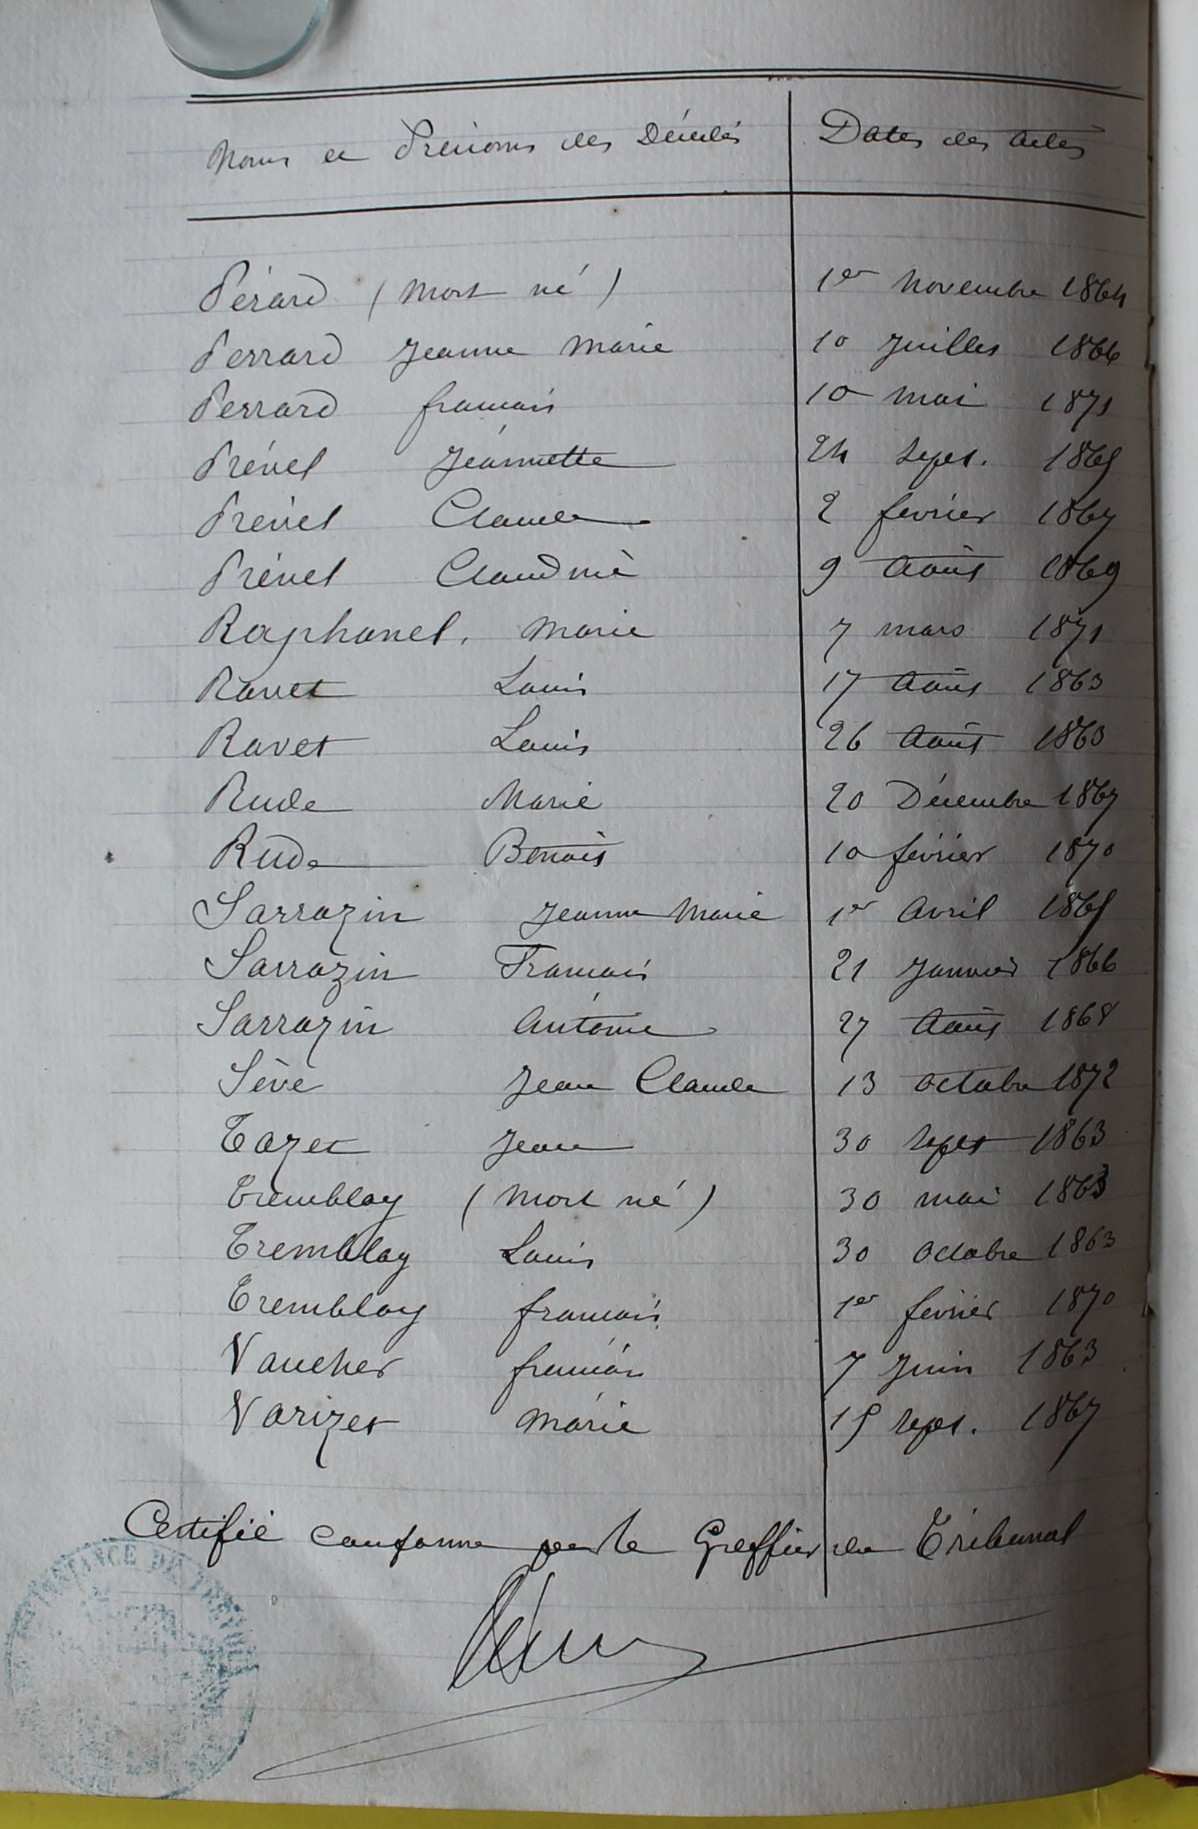 Noms et Prénoms des Décédés Dates des Actes
Pérard (mort né) 1er Novembre 1864
Perrard Jeanne Marie 10 Juillet 1866
Perrard françois 10 mai 1871
Prévet Jeannette 24 sept. 1865
Prévet Claude 2 février 1867
Prévet Claudine 9 Août 1869
Raphanel. Marie 7 mars 1871
Ravet Louis 17 Août 1863
Ravet Louis 26 Août 1863
Rude Marie 20 Décembre 1867
Rude Benoît 10 février 1870
Sarrazin Jeanne Marie 1er Avril 1865
Sarrazin François 21 Janvier 1866
Sarrazin Antoine 27 Août 1868
Sève Jean Claude 13 octobre 1872
Tazet Jean 30 sept 1863
Tremblay (mort né) 30 mai 1863
Tremblay Louis 30 octobre 1863
Tremblay françois 1er février 1870
Vaucher françois 7 Juin 1863
Varizet Marie 15 sept. 1867
Certifié conforme par le Greffier du Tribunal
INSTANCE DE